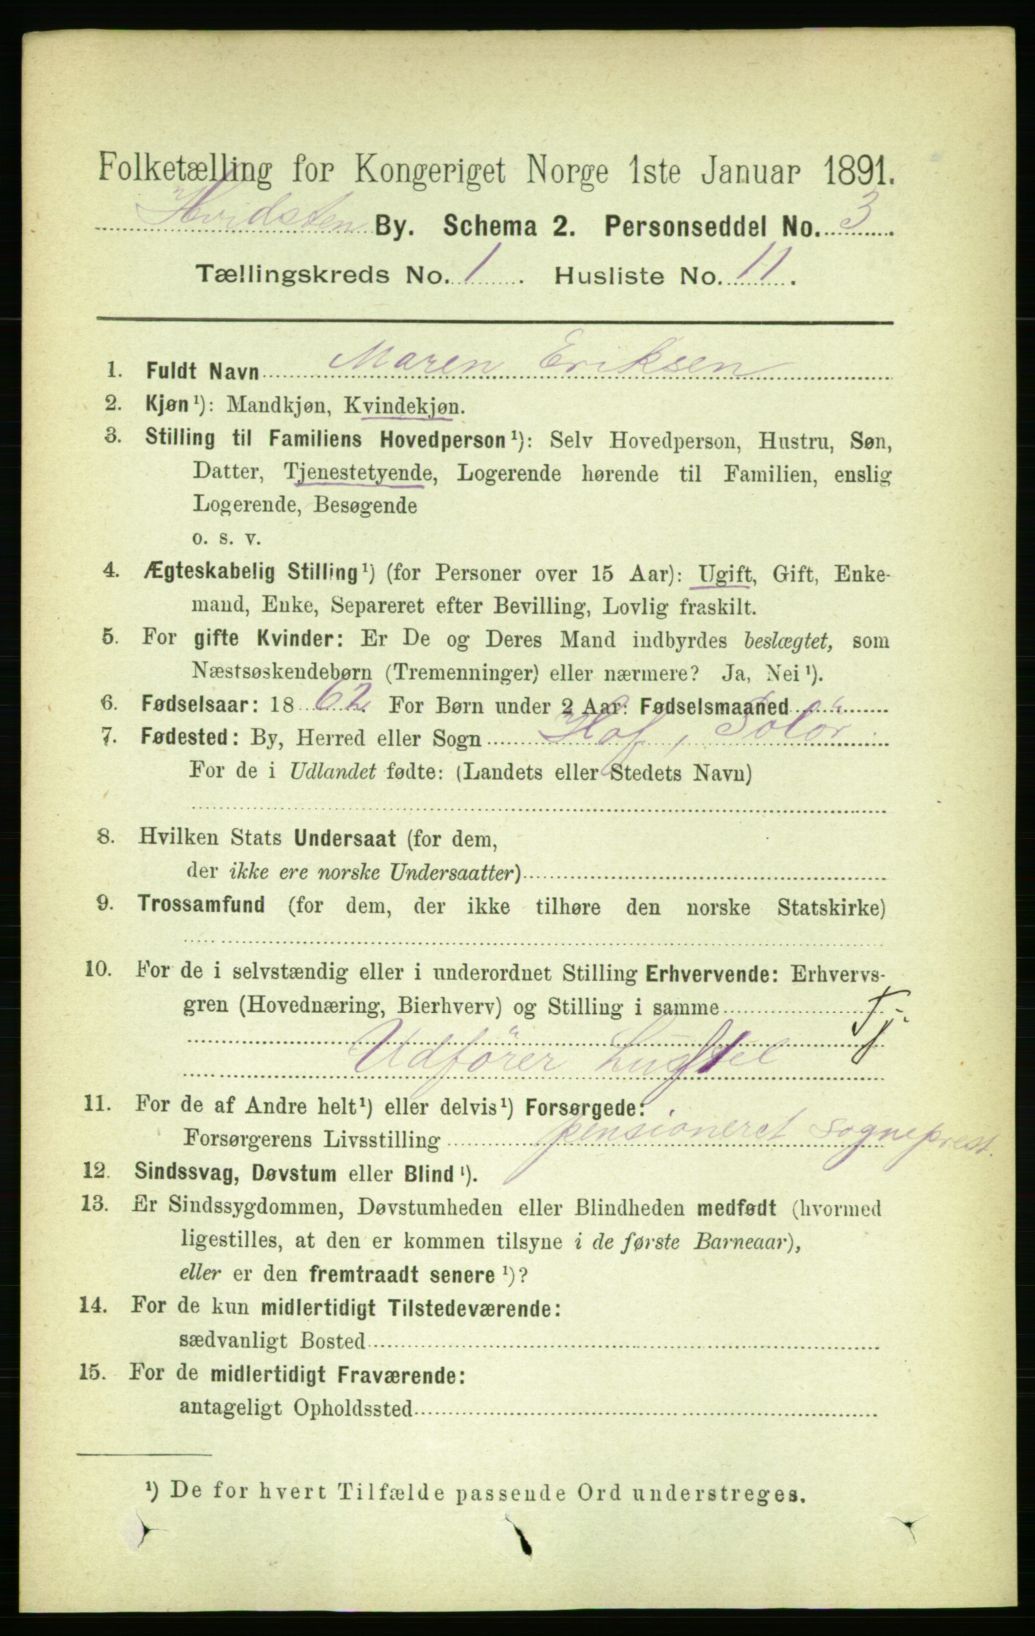 Folketælling for Kongeriget Norge 1ste Januar 1891.
Hvidsten By. Schema 2. Personseddel No. 3.
Tællingskreds No. 1. Husliste No. 11.
1. Fuldt Navn Maren Eriksen
2. Kjøn¹): Mandkjøn, Kvindekjøn.
3. Stilling til Familiens Hovedperson¹): Selv Hovedperson, Hustru, Søn,
Datter, Tjenestetyende, Logerende hørende til Familien, enslig
Logerende, Besøgende
o. s. v.
4. Ægteskabelig Stilling¹) (for Personer over 15 Aar): Ugift, Gift, Enke-
mand, Enke, Separeret efter Bevilling, Lovlig fraskilt.
5. For gifte Kvinder: Er De og Deres Mand indbyrdes beslægtet, som
Næstsøskendebørn (Tremenninger) eller nærmere? Ja, Nei¹).
6. Fødselsaar: 1862 For Børn under 2 Aar: Fødselsmaaned
7. Fødested: By, Herred eller Sogn Hof, Solör
For de i Udlandet fødte: (Landets eller Stedets Navn)
8. Hvilken Stats Undersaat (for dem,
der ikke ere norske Undersaatter)
9. Trossamfund (for dem, der ikke tilhøre den norske Statskirke)
10. For de i selvstændig eller i underordnet Stilling Erhvervende: Erhvervs-
gren (Hovednæring, Bierhverv) og Stilling i samme Tj.
Udförer
11. For de af Andre helt¹) eller delvis¹) Forsørgede:
Forsørgerens Livsstilling pensioneret sogneprest.
12. Sindssvag, Døvstum eller Blind¹).
13. Er Sindssygdommen, Døvstumheden eller Blindheden medfødt (hvormed
ligestilles, at den er kommen tilsyne i de første Barneaar),
eller er den fremtraadt senere¹)?
14. For de kun midlertidigt Tilstedeværende:
sædvanligt Bosted
15. For de midlertidigt Fraværende:
antageligt Opholdssted
¹) De for hvert Tilfælde passende Ord understreges.